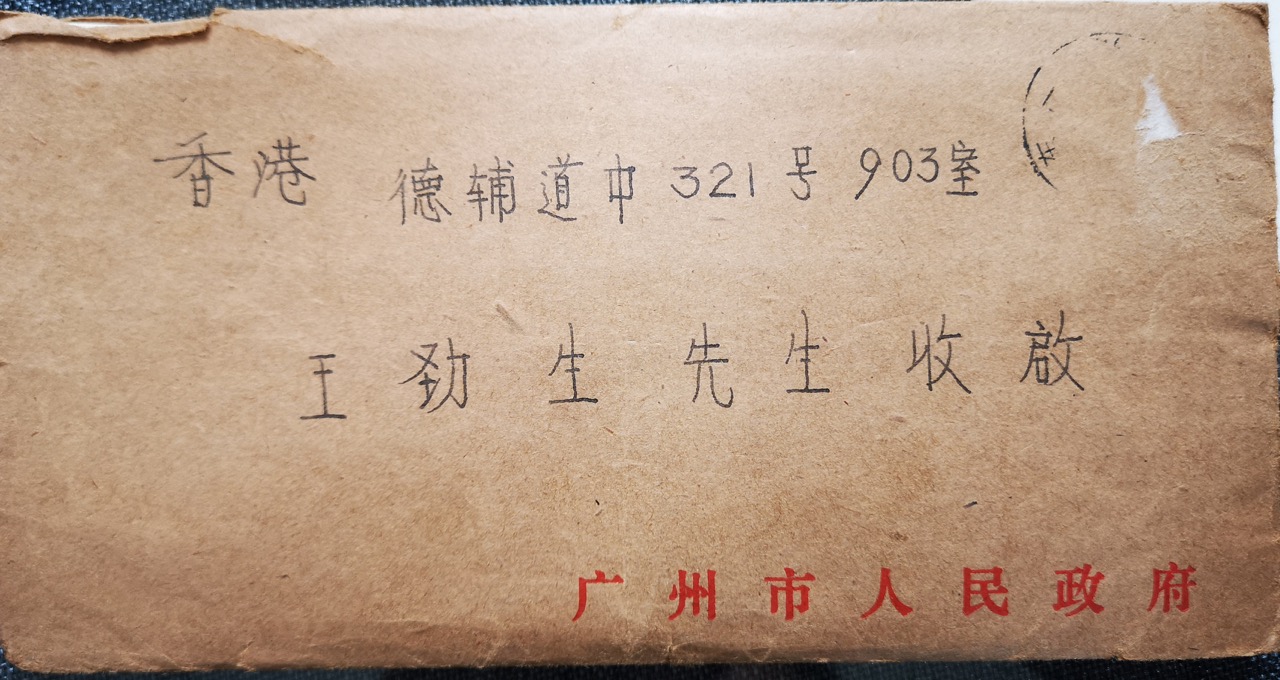 香港 德辅道中 321号 903室
王劲生先生收啟
广州市人民政府